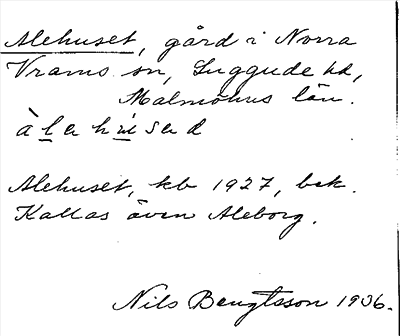 Alehuset, gård i Norra
Vrams sn, Luggude hd,
Malmöhus län.
à l e h ú s e d
Alehuset, kb 1927, bek.
Kallas även Aleborg.
Nils Bengtsson 1936.